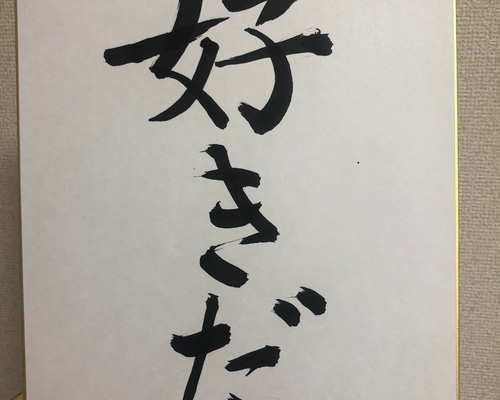 好きだ